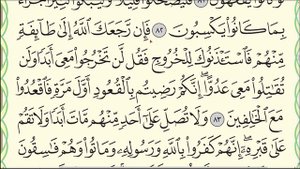 فَلْيَضْحَكُوا۟ قَلِيلًا وَلْيَبْكُوا۟ كَثِيرًا جَزَآءًۢ
بِمَا كَانُوا۟ يَكْسِبُونَ ٨٢ فَإِن رَّجَعَكَ ٱللَّهُ إِلَىٰ طَآئِفَةٍ
مِّنْهُمْ فَٱسْتَـْٔذَنُوكَ لِلْخُرُوجِ فَقُل لَّن تَخْرُجُوا۟ مَعِىَ أَبَدًا وَلَن
تُقَـٰتِلُوا۟ مَعِىَ عَدُوًّا ۖ إِنَّكُمْ رَضِيتُم بِٱلْقُعُودِ أَوَّلَ مَرَّةٍ فَٱقْعُدُوا۟
مَعَ ٱلْخَـٰلِفِينَ ٨٣ وَلَا تُصَلِّ عَلَىٰٓ أَحَدٍ مِّنْهُم مَّاتَ أَبَدًا وَلَا تَقُمْ
عَلَىٰ قَبْرِهِۦٓ ۖ إِنَّهُمْ كَفَرُوا۟ بِٱللَّهِ وَرَسُولِهِۦ وَمَاتُوا۟ وَهُمْ فَـٰسِقُونَ